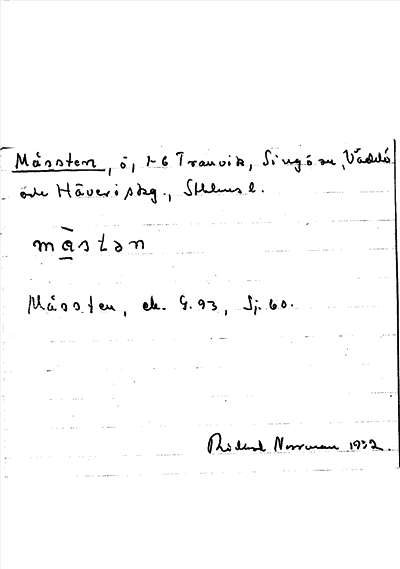 Måssten, ö, 1-6 Tranvik, Singö sn, Väddö
och Häverö skg., Sthlms l.
màstən
Måssten, ek. G. 93, Sj. 60.
Rickard Norrman 1932.